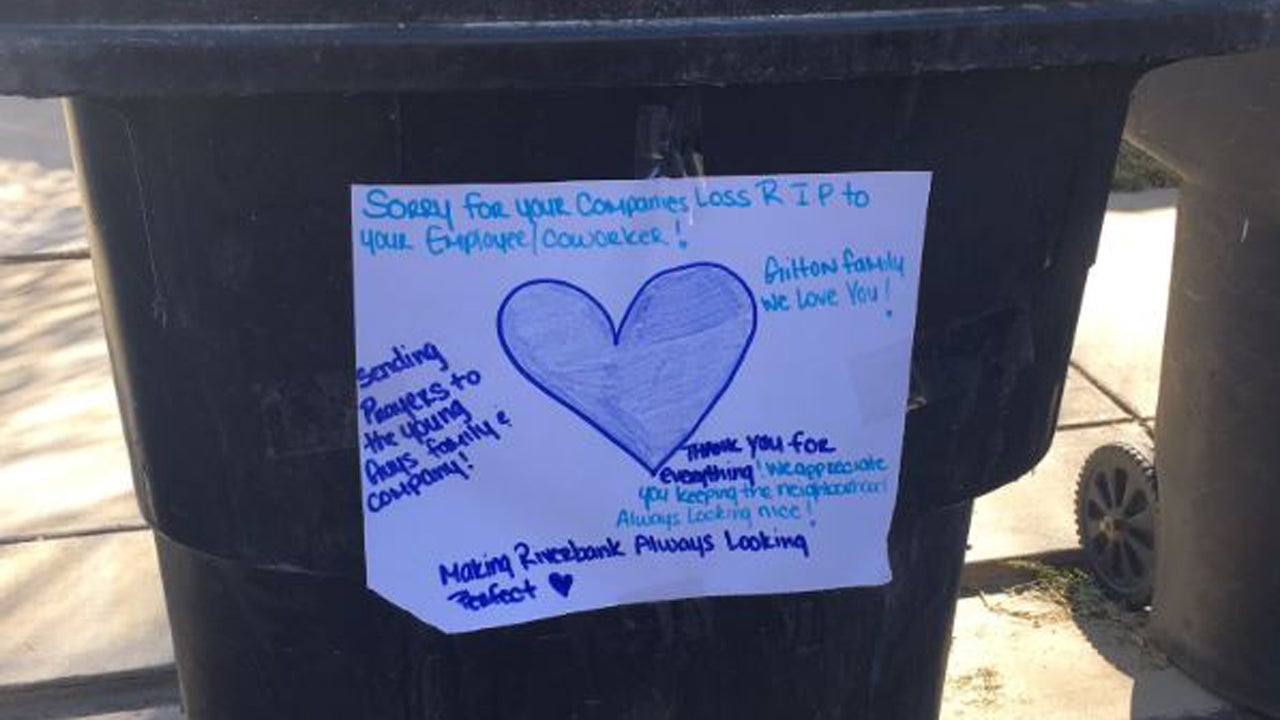 Sorry for your Companies Loss R I P to
your Employee/coworker!
Gilton family
we Love You!
Sending
Prayers to
the young
Guys family &
company!
Thank you for
everything! We appreciate
you keeping the neighborhood
Always Looking nice!
Making Riverbank Always Looking
Perfect